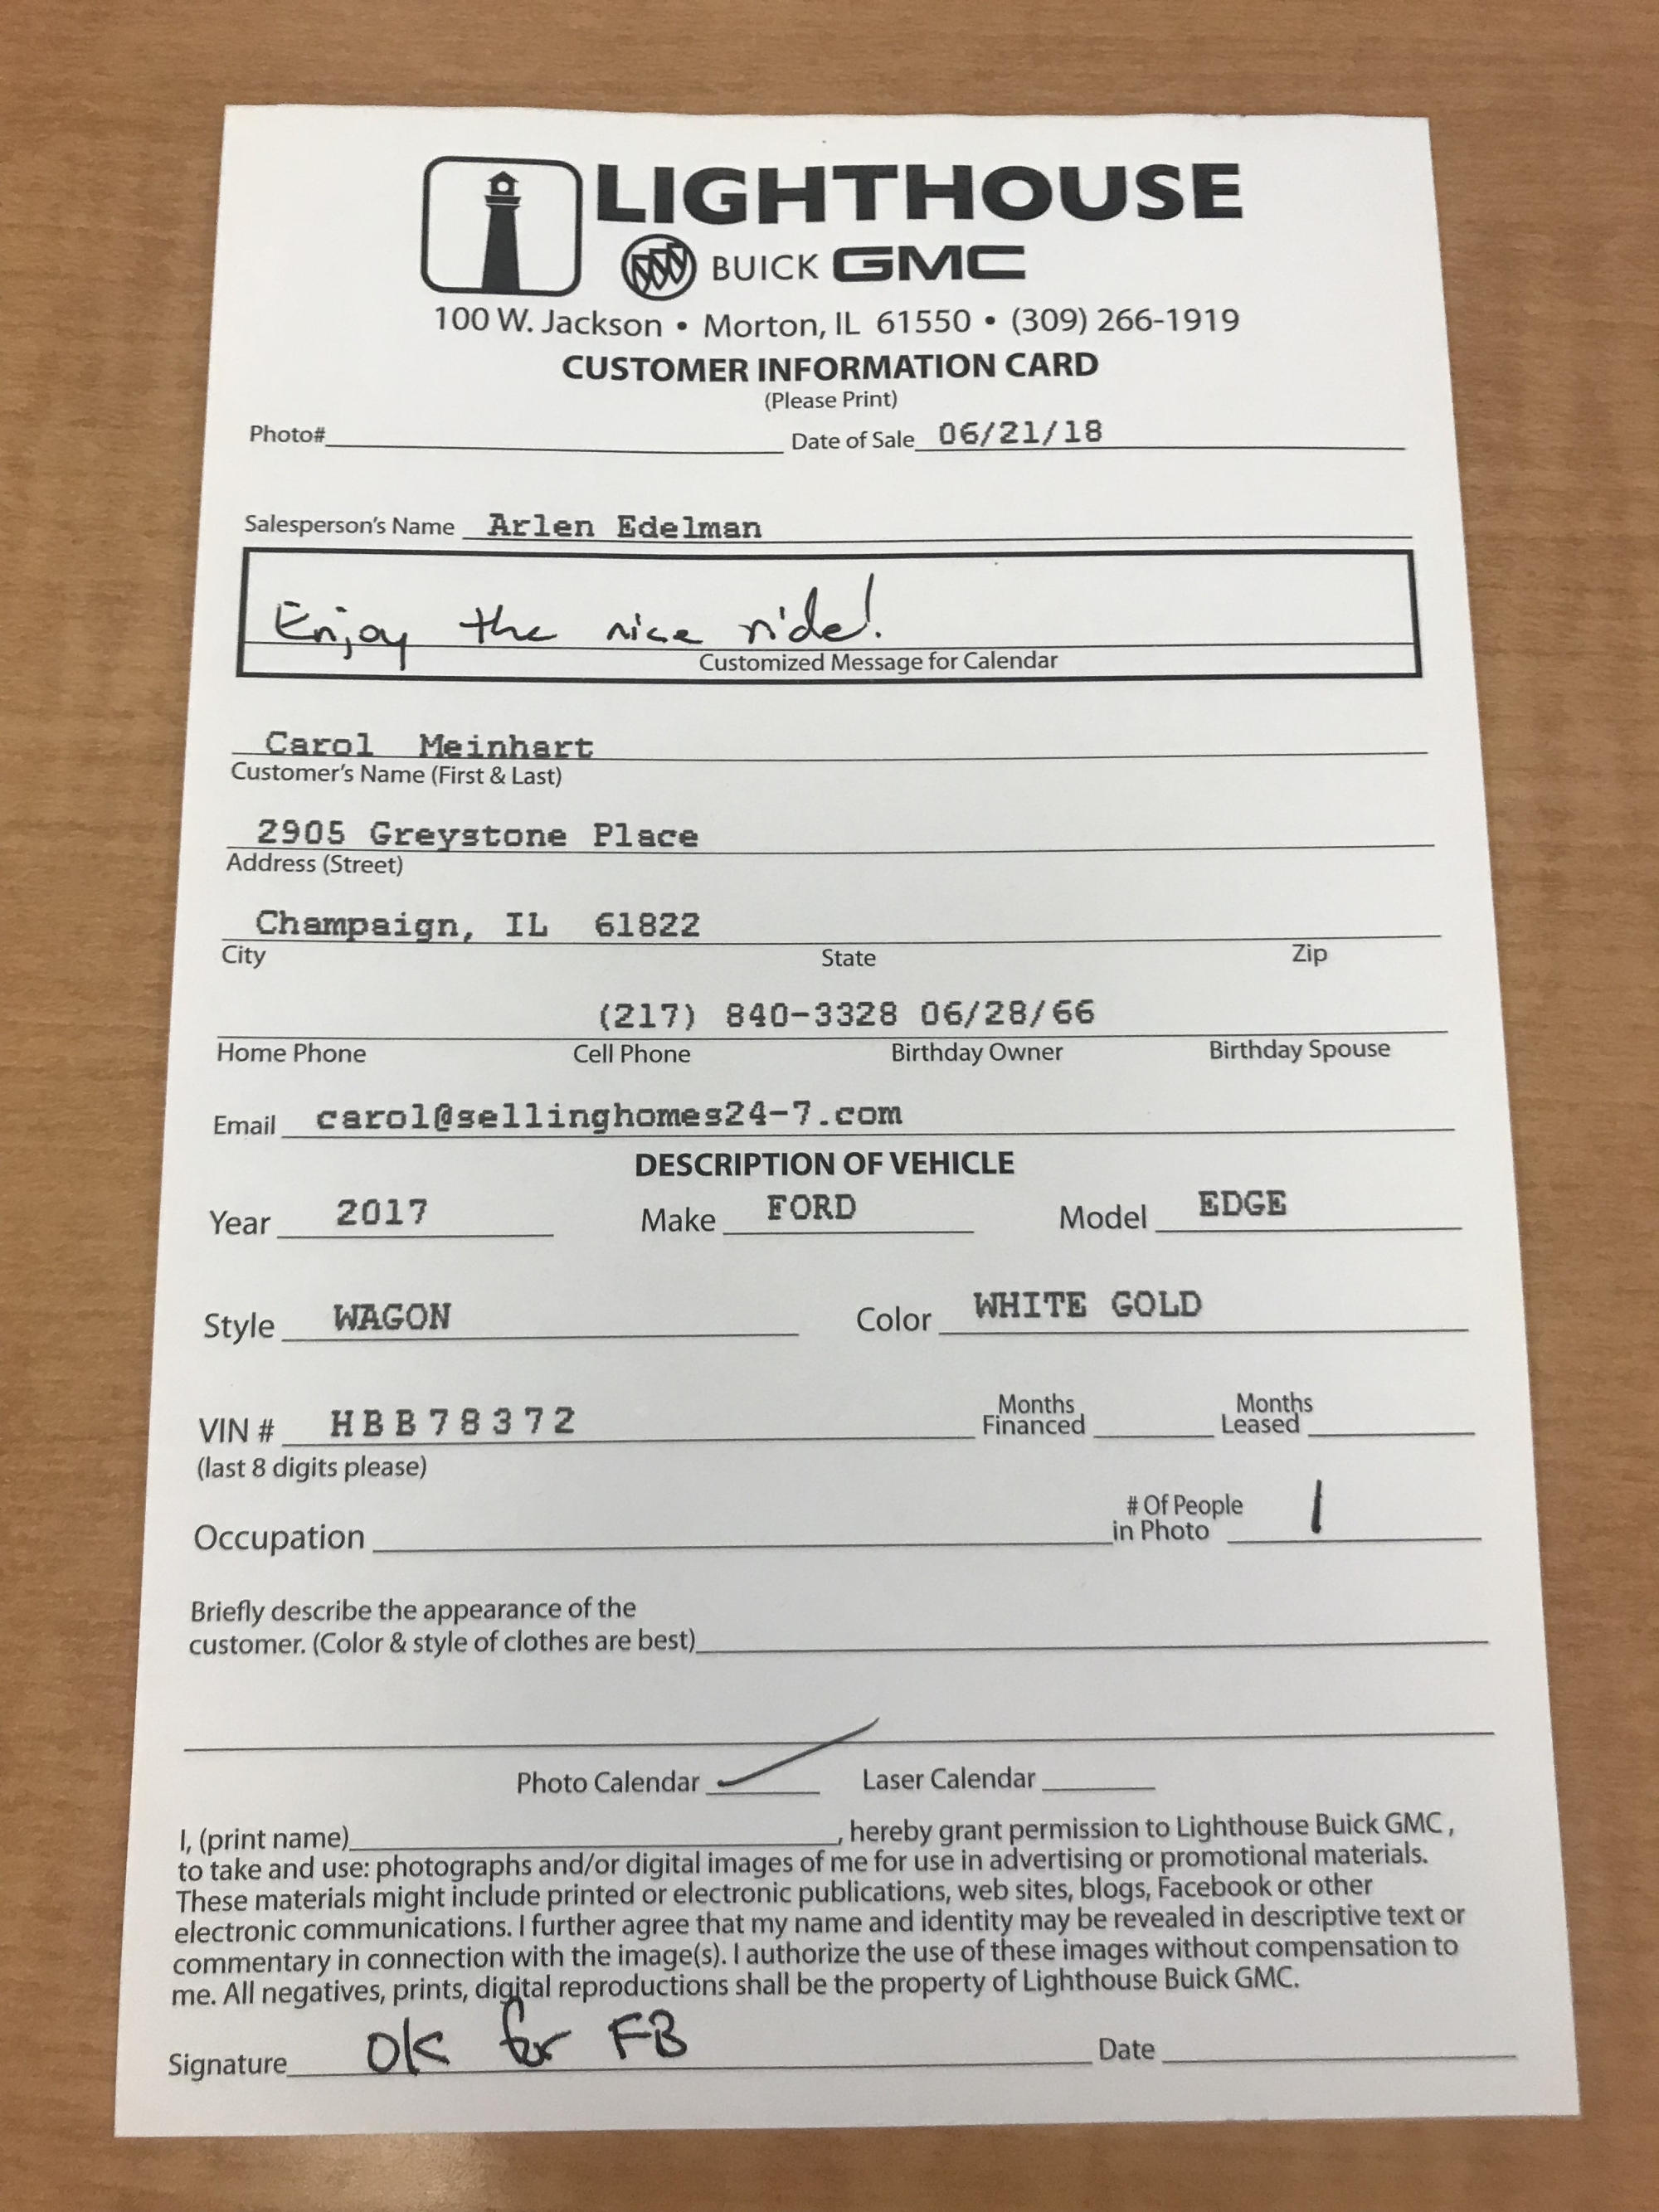 LIGHTHOUSE
BUICK GMC
100 W. Jackson • Morton, IL 61550 • (309) 266-1919
CUSTOMER INFORMATION CARD
(Please Print)
Photo# Date of Sale 06/21/18
Salesperson's Name Arlen Edelman
Enjoy the nice ride!
Customized Message for Calendar
Carol Meinhart
Customer's Name (First & Last)
2905 Greystone Place
Address (Street)
Champaign, IL 61822
City State Zip
(217) 840-3328 06/28/66
Home Phone Cell Phone Birthday Owner Birthday Spouse
Email carol@sellinghomes24-7.com
DESCRIPTION OF VEHICLE
Year 2017 Make FORD Model EDGE
Style WAGON Color WHITE GOLD
VIN # HBB78372 Months Financed Months Leased
(last 8 digits please)
Occupation # Of People in Photo 1
Briefly describe the appearance of the
customer. (Color & style of clothes are best)
Photo Calendar ✓ Laser Calendar
I, (print name) , hereby grant permission to Lighthouse Buick GMC,
to take and use: photographs and/or digital images of me for use in advertising or promotional materials.
These materials might include printed or electronic publications, web sites, blogs, Facebook or other
electronic communications. I further agree that my name and identity may be revealed in descriptive text or
commentary in connection with the image(s). I authorize the use of these images without compensation to
me. All negatives, prints, digital reproductions shall be the property of Lighthouse Buick GMC.
Signature OK for FB Date